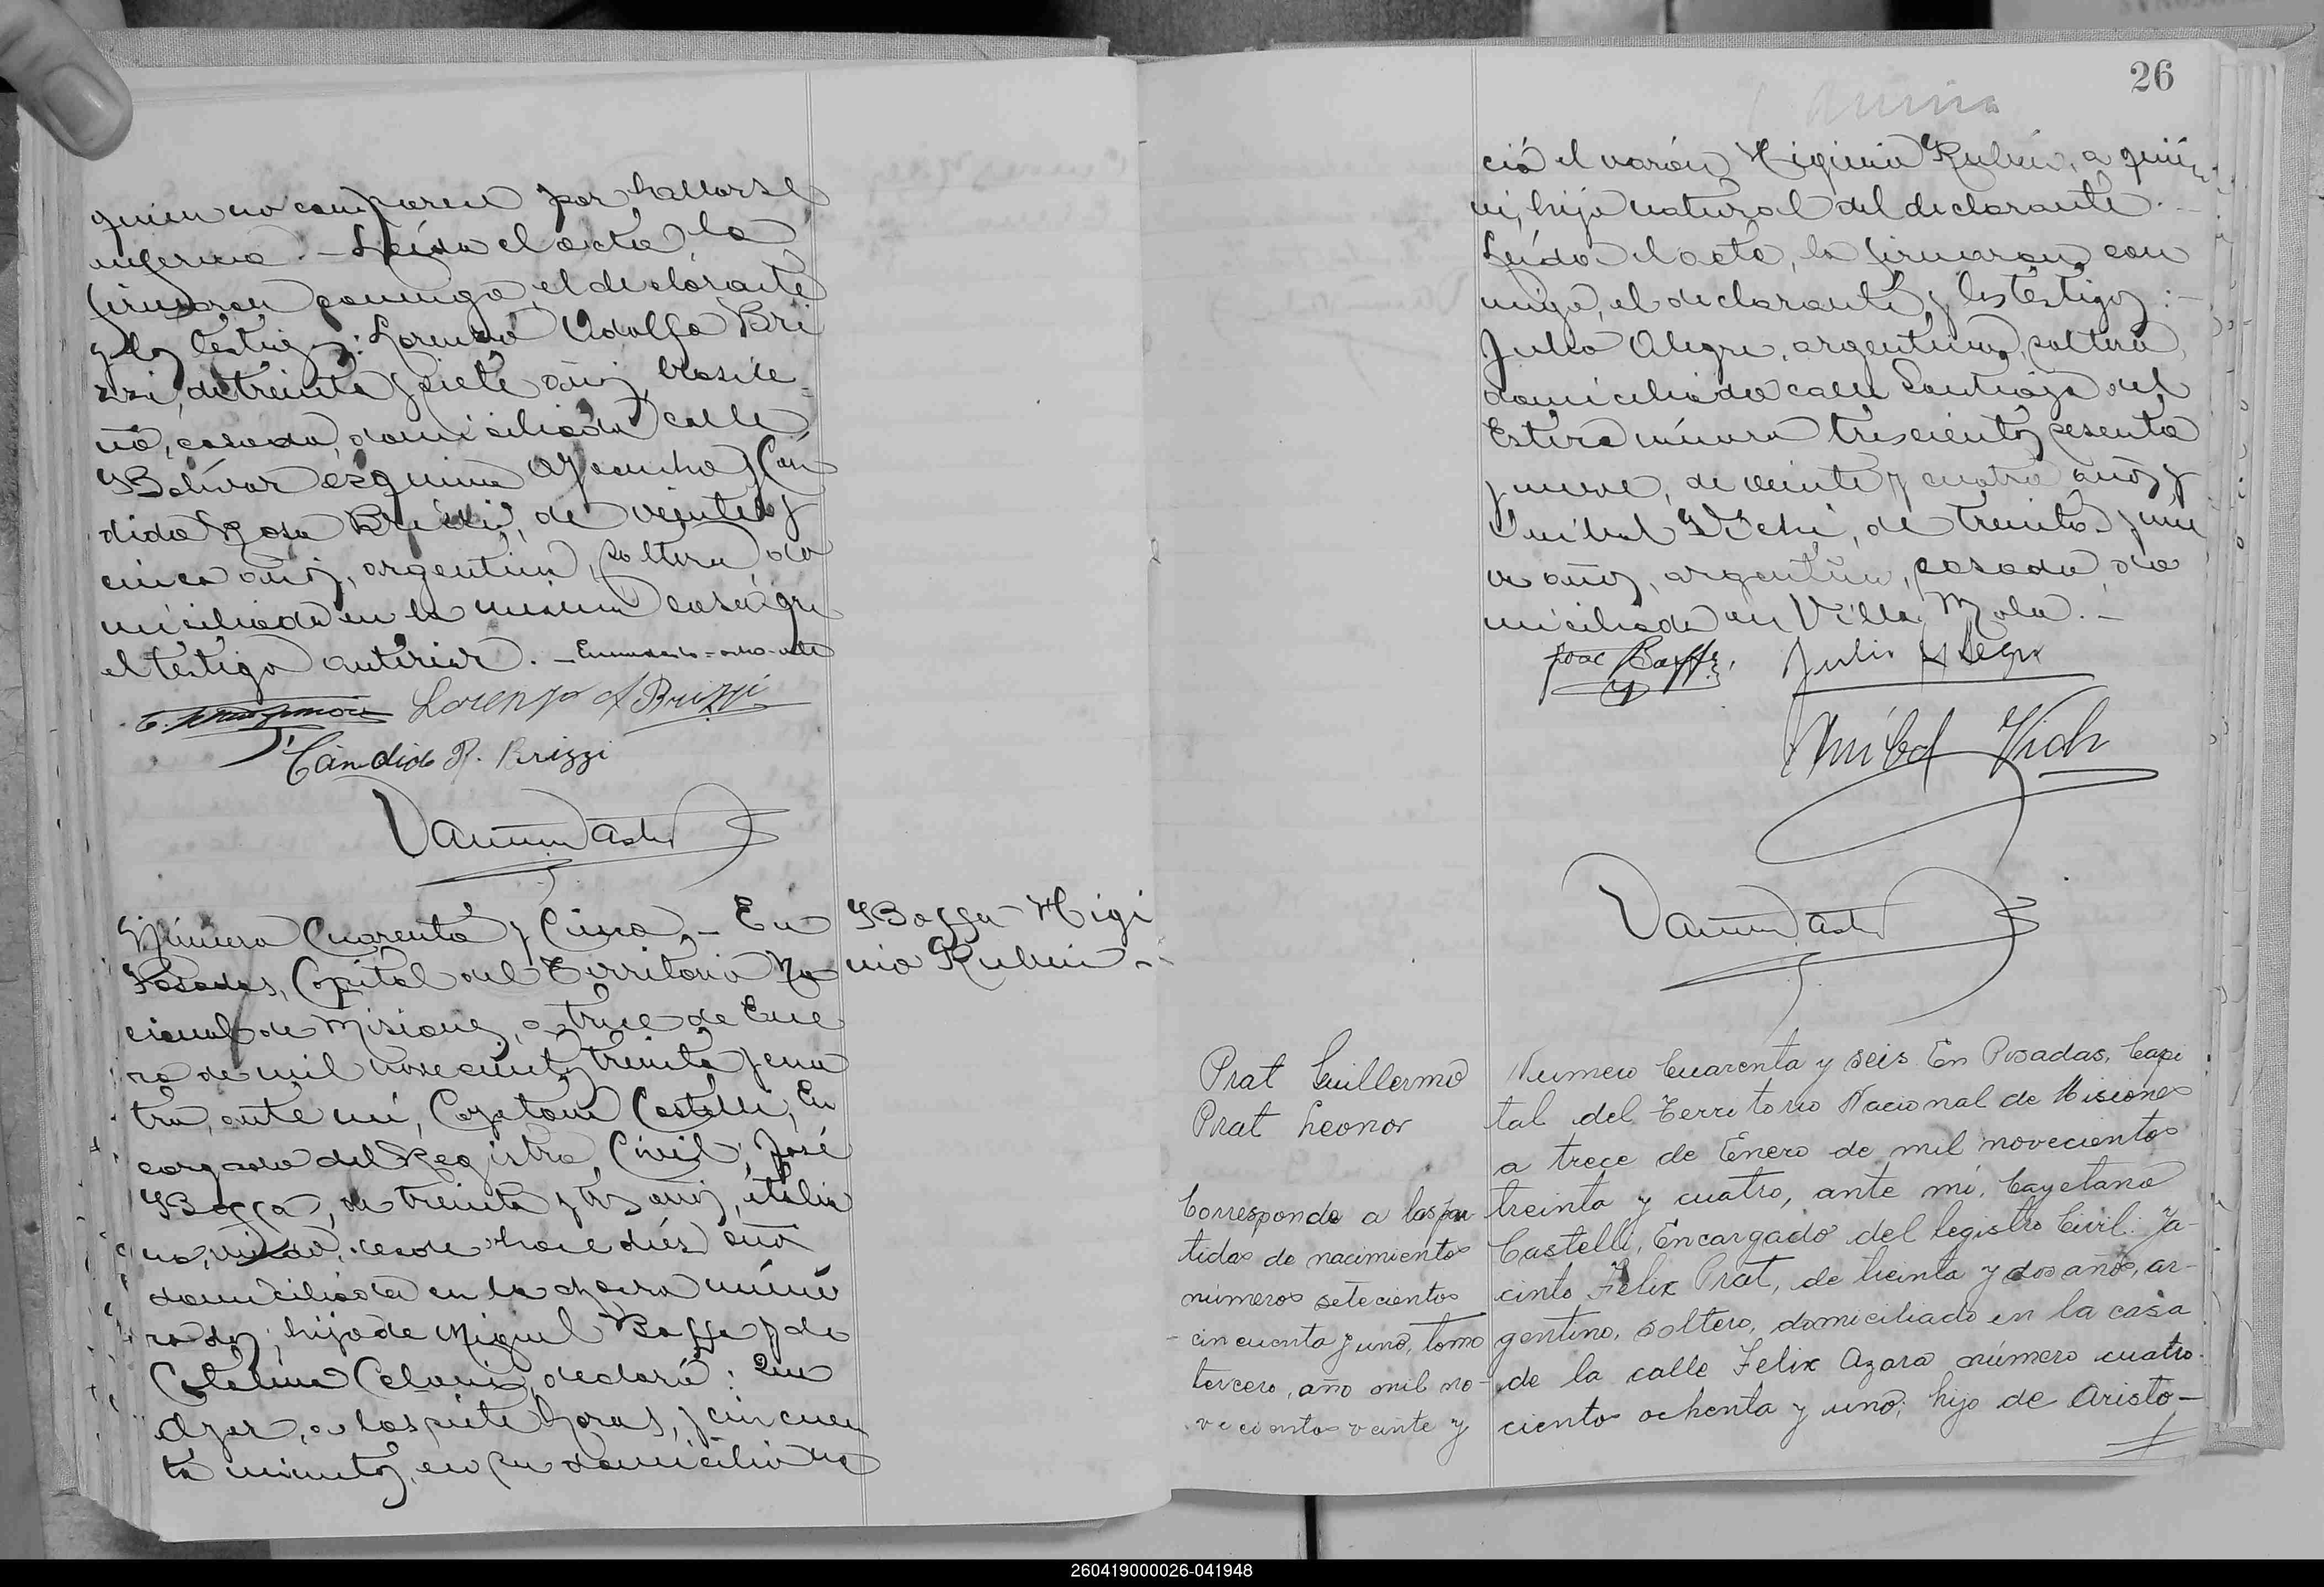 quien no comparece por hallarse
enferma. - Leída el acta, la
firmaron conmigo, el declarante
y los testigos: Lorenzo Adolfo Bri
zzi, de treinta y siete años, brasile-
ño, casado, domiciliado calle
Bolívar esquina Ayacucho y Can
dido Rosa Brizzi, de veinte y
cinco años, argentino, soltero, do
miciliado en la misma casa que
el testigo anterior. -
Lorenzo A Brizzi
Candido R. Brizzi
Número Cuarenta y Cinco. - En
Posadas, Capital del Territorio Na
cional de Misiones, a trece de Ene
ro de mil novecientos treinta y cua
tro, ante mí, Cayetano Castelli, En
cargado del Registro Civil, José
Boffa, de treinta y tres años, italia
no, desde hace diés años
domiciliado en la chacra núme
ro dos, hijo de Miguel Boffa y de
Catalina declaró: Que
Ayer, a las siete horas, y cincuen
ta minutos, en su domicilio na
Boffa Higi
nio Rubén.-
26
ció el varón Higinio Rubén, a quién
vi, hijo natural del declarante. -
Leída el acta, la firmaron con
migo, el declarante y los testigos: -
Julio Alegre, argentino, soltero,
domiciliado calle Santiago del
Estero número trescientos sesenta
y nueve, de veinte y cuatro años y
Anibal Vichi, de treinta y nue
ve años, argentino, casado, do
miciliado en Villa Mola. -
Jose Boffa Julio Alegre
Anibal Vichi
Prat Guillermo
Prat Leonor
Corresponde a las par
tidas de nacimientos
números setecientos
cincuenta y uno, tomo
tercero, año mil no-
vecientos veinte y
Numero Cuarenta y seis En Posadas, Capi
tal del Territorio Nacional de Misiones
a trece de Enero de mil novecientos
treinta y cuatro, ante mí, Cayetano
Castelli, Encargado del Registro Civil: Ja-
cinto Felix Prat, de treinta y dos años, ar-
gentino, soltero, domiciliado en la casa
de la calle Felix Azara número cuatro-
cientos ochenta y uno; hijo de Aristo-
260419000026-041948